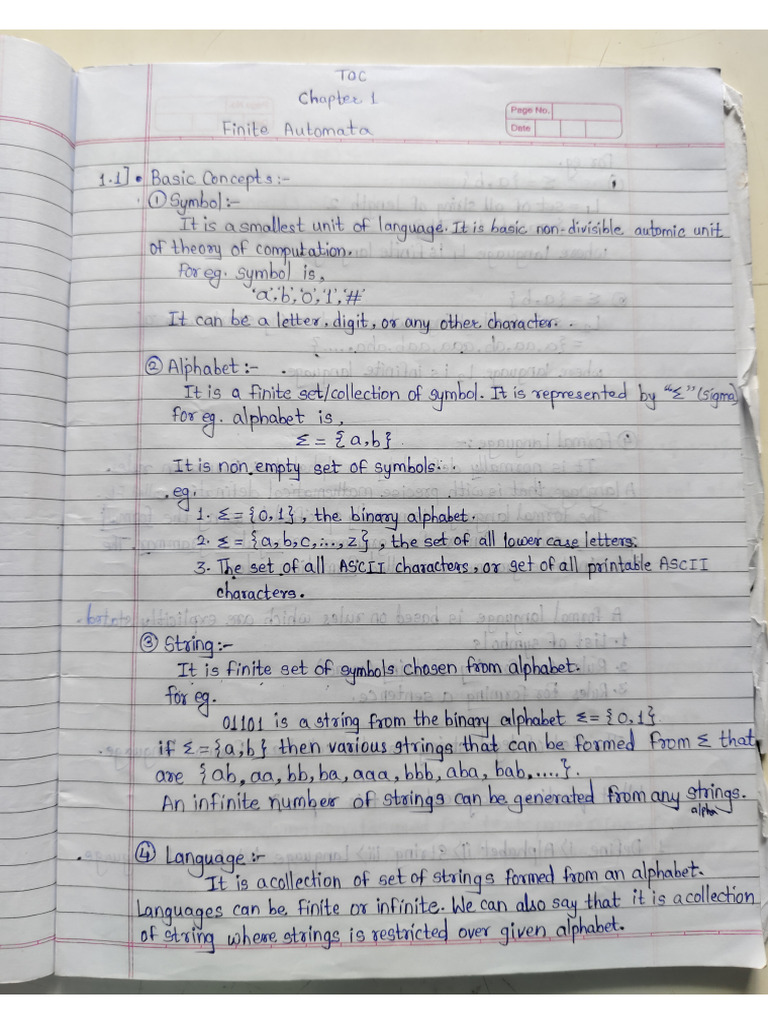 TOC
Chapter 1
Page No.
Finite Automata
Date
1.1] • Basic Concepts :-
① Symbol :-
It is a smallest unit of language. It is basic non-divisible automic unit
of theory of computation.
for eg. symbol is,
'a','b','0','1','#'
It can be a letter, digit, or any other character.
② Alphabet :-
It is a finite set/collection of symbol. It is represented by "Σ" (sigma)
for eg. alphabet is,
Σ = {a,b}
It is non empty set of symbols.
eg.
1. Σ = {0,1}, the binary alphabet.
2. Σ = {a,b,c,....,z}, the set of all lower case letters.
3. The set of all ASCII characters, or set of all printable ASCII
characters.
③ String :-
It is finite set of symbols chosen from alphabet.
for eg.
01101 is a string from the binary alphabet Σ = {0,1}
if Σ = {a,b} then various strings that can be formed from Σ that
are {ab, aa, bb, ba, aaa, bbb, aba, bab, .....}.
An infinite number of strings can be generated from any strings.
alpha
④ Language :-
It is a collection of set of strings formed from an alphabet.
Languages can be finite or infinite. We can also say that it is a collection
of string where strings is restricted over given alphabet.